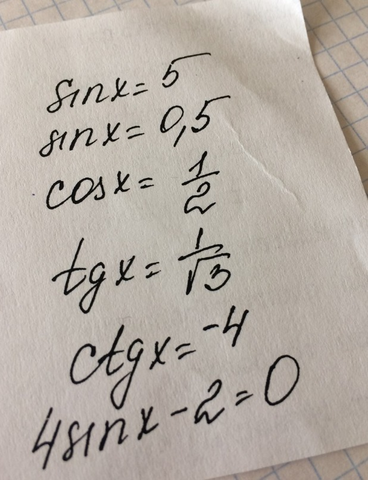 sinx = 5
sinx = 0,5
cosx = 1/2
tgx = 1/√3
ctgx = -4
4sinx - 2 = 0